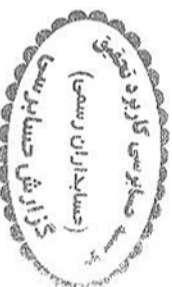 موسسه حسابرسی کاربرد تحقیق
(حسابداران رسمی)
گزارش حسابرسی